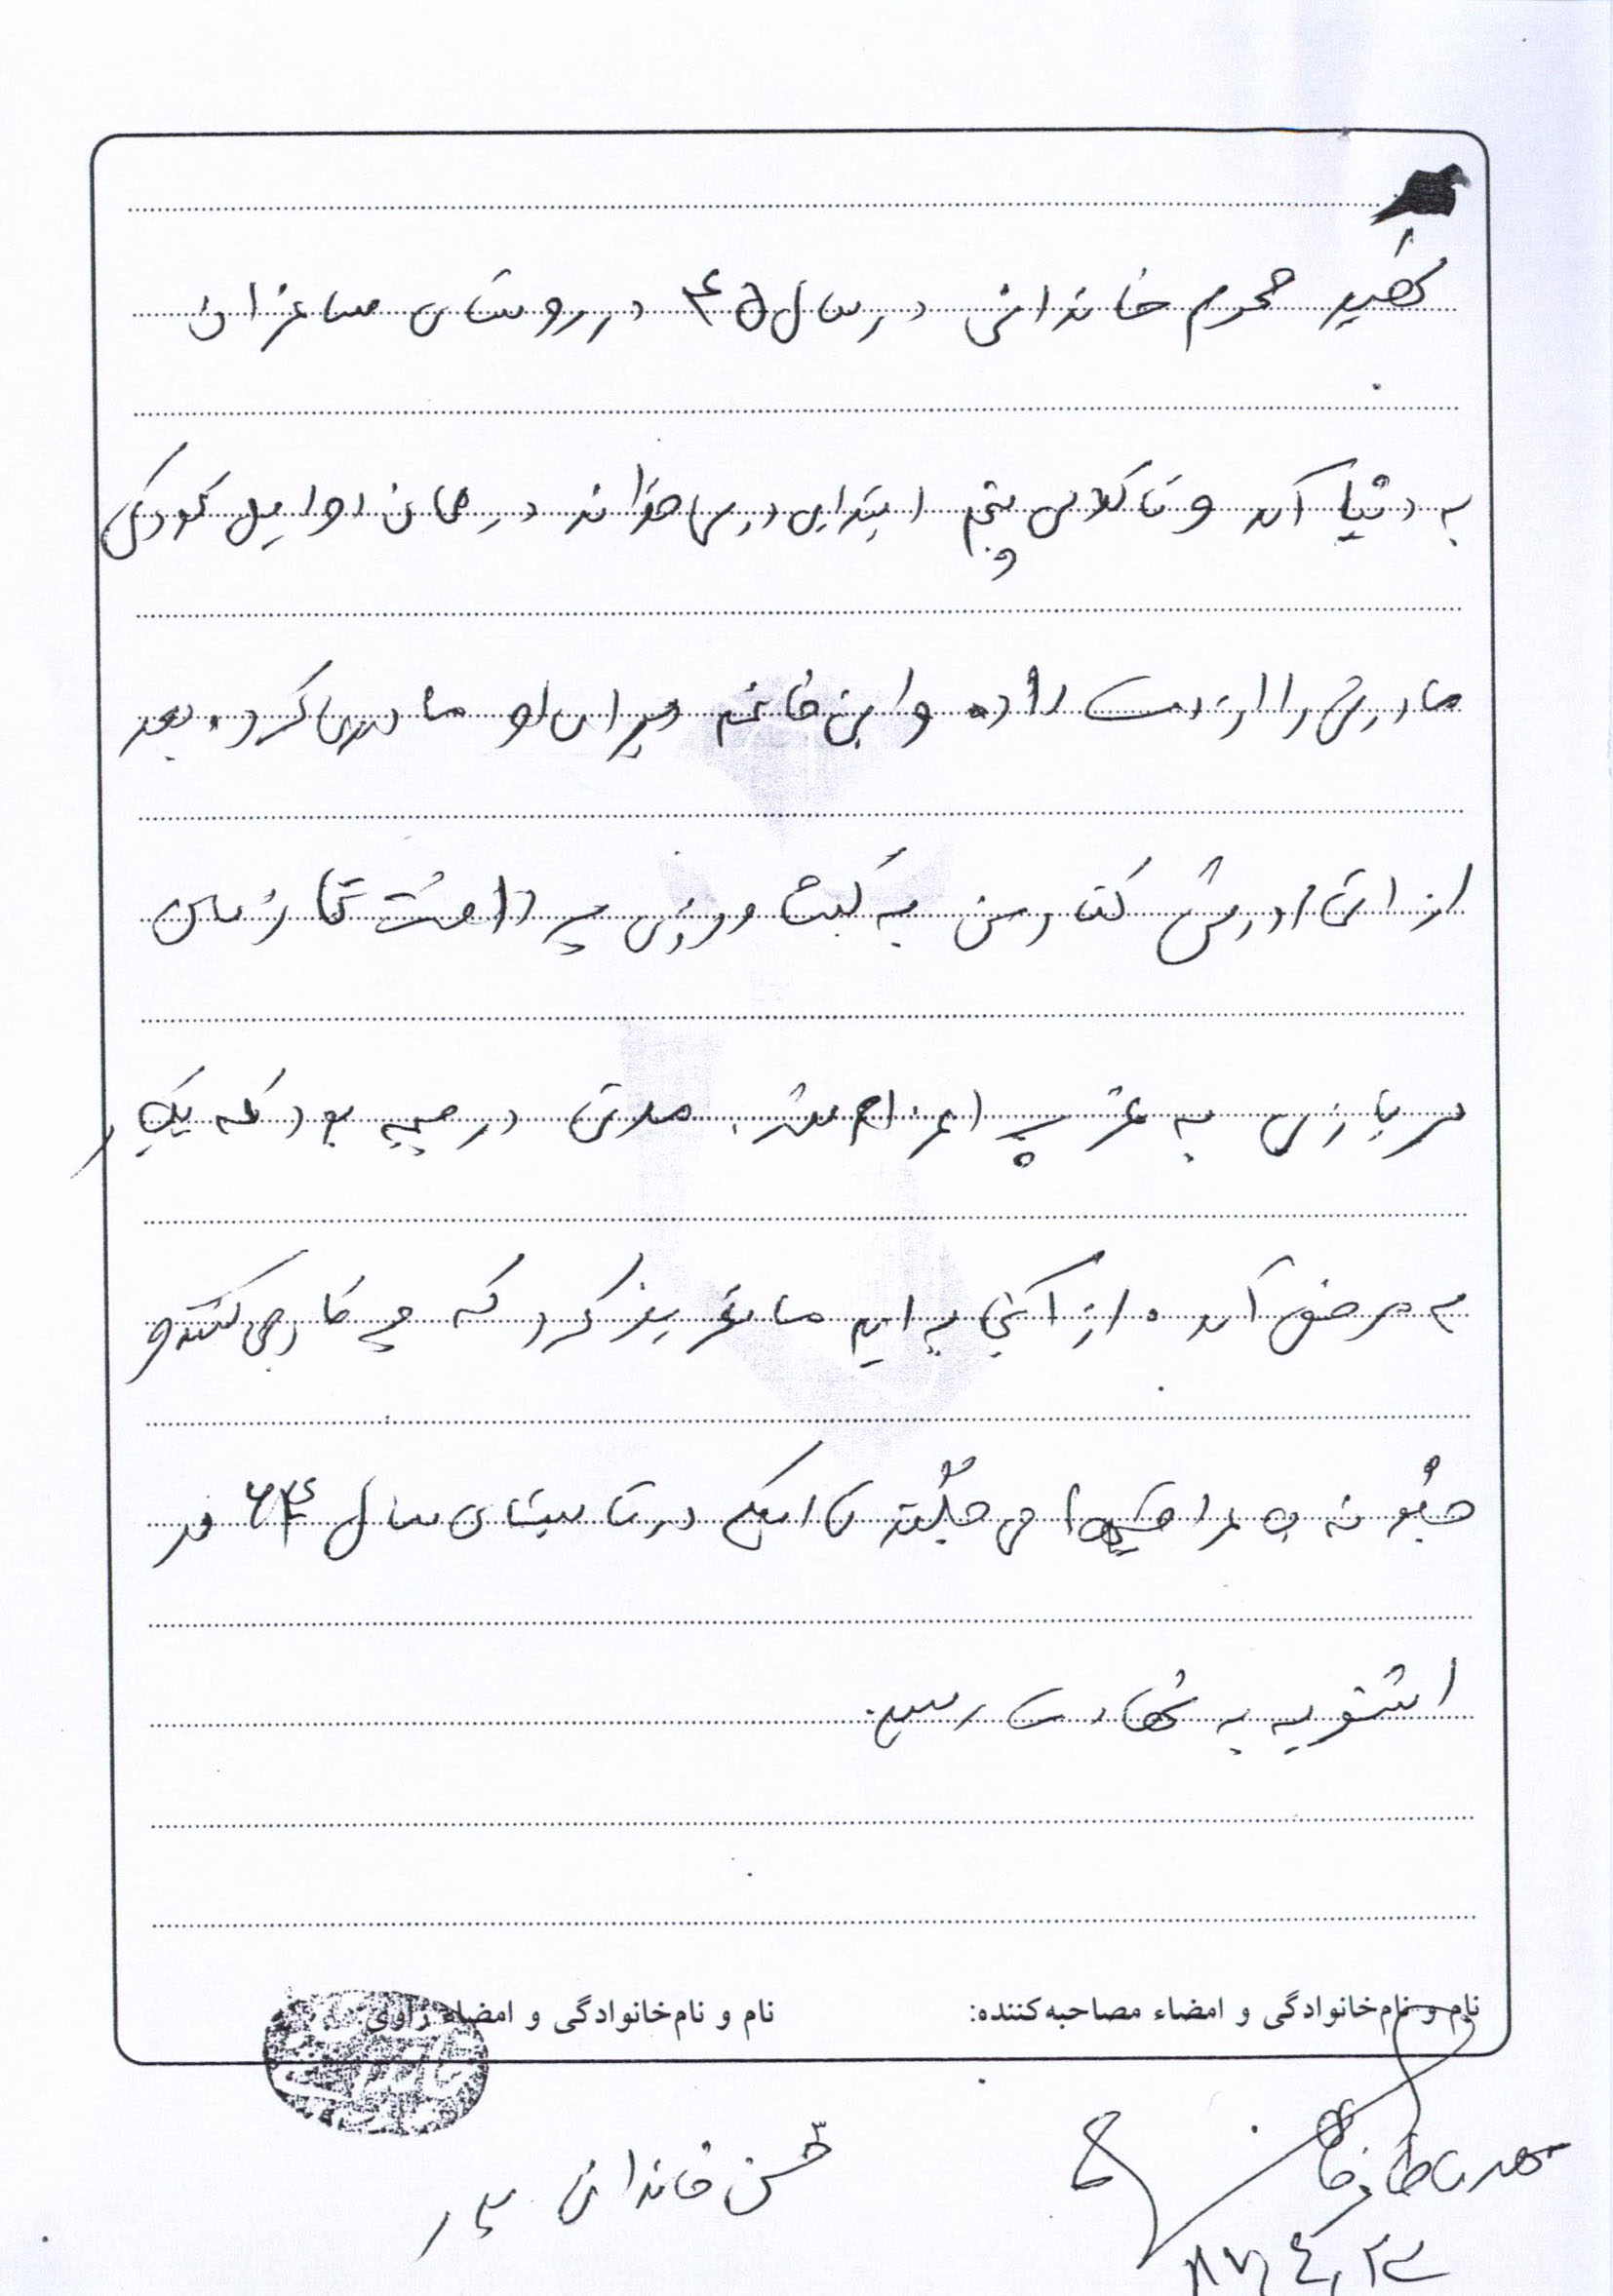 شهید محرم خاندانی در سال ۴۵ در روستای صاغران
به دنیا آمد و تا کلاس پنجم ابتدایی درس خواند در همان اوایل کودکی
مادرش را از دست داده و این خانم برای او مادری کرد. بعد
از اتمام درسش کنار من به کشاورزی پرداخت تا زمان
سربازی به غرب اعزام شد. مدتی در جبهه بود که یک
به مرخصی آمد. از آنجا برایم ما تعریف کرد که چه کار می کنند و
چگونه با عراقیها می جنگند تا اینکه در تابستان سال ۶۴ در
اشنویه به شهادت رسید.
نام و نام‌خانوادگی و امضاء مصاحبه‌کننده:
نام و نام‌خانوادگی و امضاء راوی
حسن خاندانی پدر